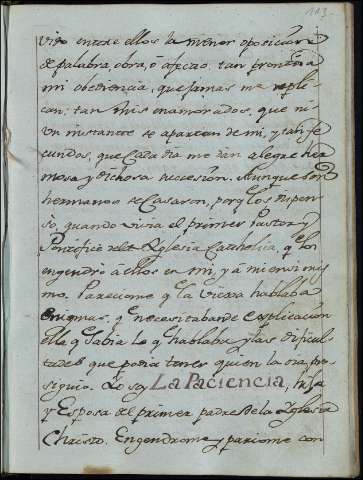 113
vido entre ellos la menor oposicion
de palabra, obra, o afecto. tan prontos a
mi obediencia, que jamas me repli-
can: tan mis enamorados, que ni
un instante se apartan de mi, y tan fe-
cundos, que cada dia me dan alegre her-
mosa y dichosa succesion. Aunque son
hermanos se casaron, porq los dispen-
so, quando vivia el primer Pastor y
Pontifice de la Yglesia Catholica, q los
engendro à ellos en mi, y à mi en si mis
mo. Pareciome q la Vieja hablaba
enigmas, q necesitaban de explicacion
ella q sabia lo q hablaba y las dificul-
tades que podia tener quien la oia, pro-
siguio. Yo soy La Paciencia, hija
y Esposa del primer padre de la Yglesia
Christo. Engendrome y pariome con